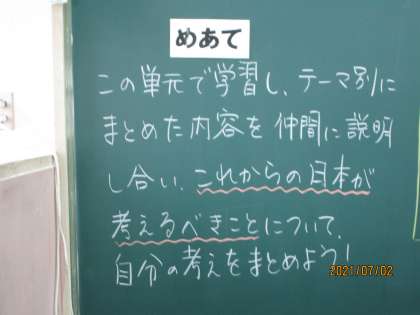 めあて
この単元で学習し、テーマ別に
まとめた内容を仲間に説明
し合い、これからの日本が
考えるべきことについて、
自分の考えをまとめよう!
2021/07/02